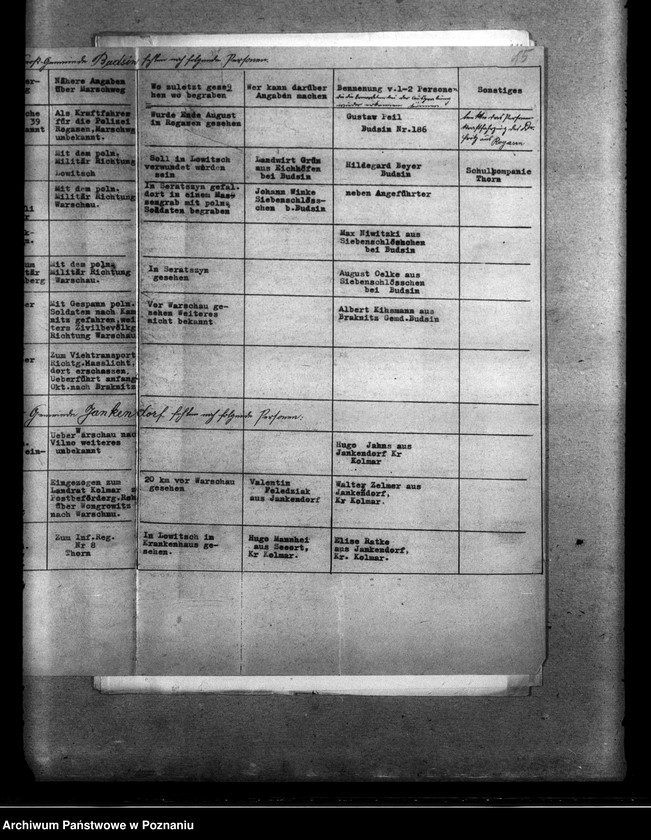 Gemeinde Budsin fehlen noch folgende Personen.
15
Nähere Angaben
über Marschweg
Wo zuletzt gese
hen wo begraben
Wer kann darüber
Angaben machen
Benennung v.1-2 Personen
die die
bei der
wieder erkennen können
Sonstiges
che
39
annt
Als Kraftfahrer
für die Polizei
Rogasen, Marschweg
unbekannt.
Wurde Ende August
in Rogasen gesehen
Gustav Feil
Budsin Nr.186
Rogasen
Mit dem poln.
Militär Richtung
Lowitsch
Soll in Lowitsch
verwundet worden
sein
Landwirt Grün
aus Eichhöfen
bei Budsin
Hildegard Beyer
Budsin
Schulkompanie
Thorn
Mit dem poln.
Militär Richtung
Warschau.
In Seratszyn gefal.
dort in einem Mas-
sengrab mit poln.
Soldaten begraben
Johann Winke
Siebenschlöss-
chen b.Budsin
neben Angeführter
Max Niwitzki aus
Siebenschlösschen
bei Budsin
um
tär
berg
Mit dem poln.
Militär Richtung
Warschau.
In Seratszyn
gesehen
August Oelke aus
Siebenschlösschen
bei Budsin
er
Mit Gespann poln.
Soldaten nach Kam
nitz gefahren, wei
ters Zivilbevölkg
Richtung Warschau
Vor Warschau ge-
sehen Weiteres
nicht bekannt
Albert Kihsmann aus
Braknitz Gemd.Budsin
er
Zum Viehtransport
Richtg.Hasslicht,
dort erschossen,
Ueberführt anfang
Okt.nach Braknitz
Gemeinde Jankendorf fehlen noch folgende Personen:
ein-
Ueber Warschau nac
Vilna weiteres
unbekannt
Hugo Jahns aus
Jankendorf Kr
Kolmar
Eingezogen zum
Landrat Kolmar z
Postbeförderg.
über Wongrowitz
nach Warschau.
20 km vor Warschau
gesehen
Valentin
Feledziak
aus Jankendorf
Walter Zelmer aus
Jankendorf,
Kr Kolmar.
Zum Inf.Reg.
Nr 8
Thorn
In Lowitsch im
Krankenhaus ge-
sehen.
Hugo Mannhei
aus Seeort,
Kr Kolmar.
Elise Ratke
aus Jankendorf,
Kr. Kolmar.
Archiwum Państwowe w Poznaniu